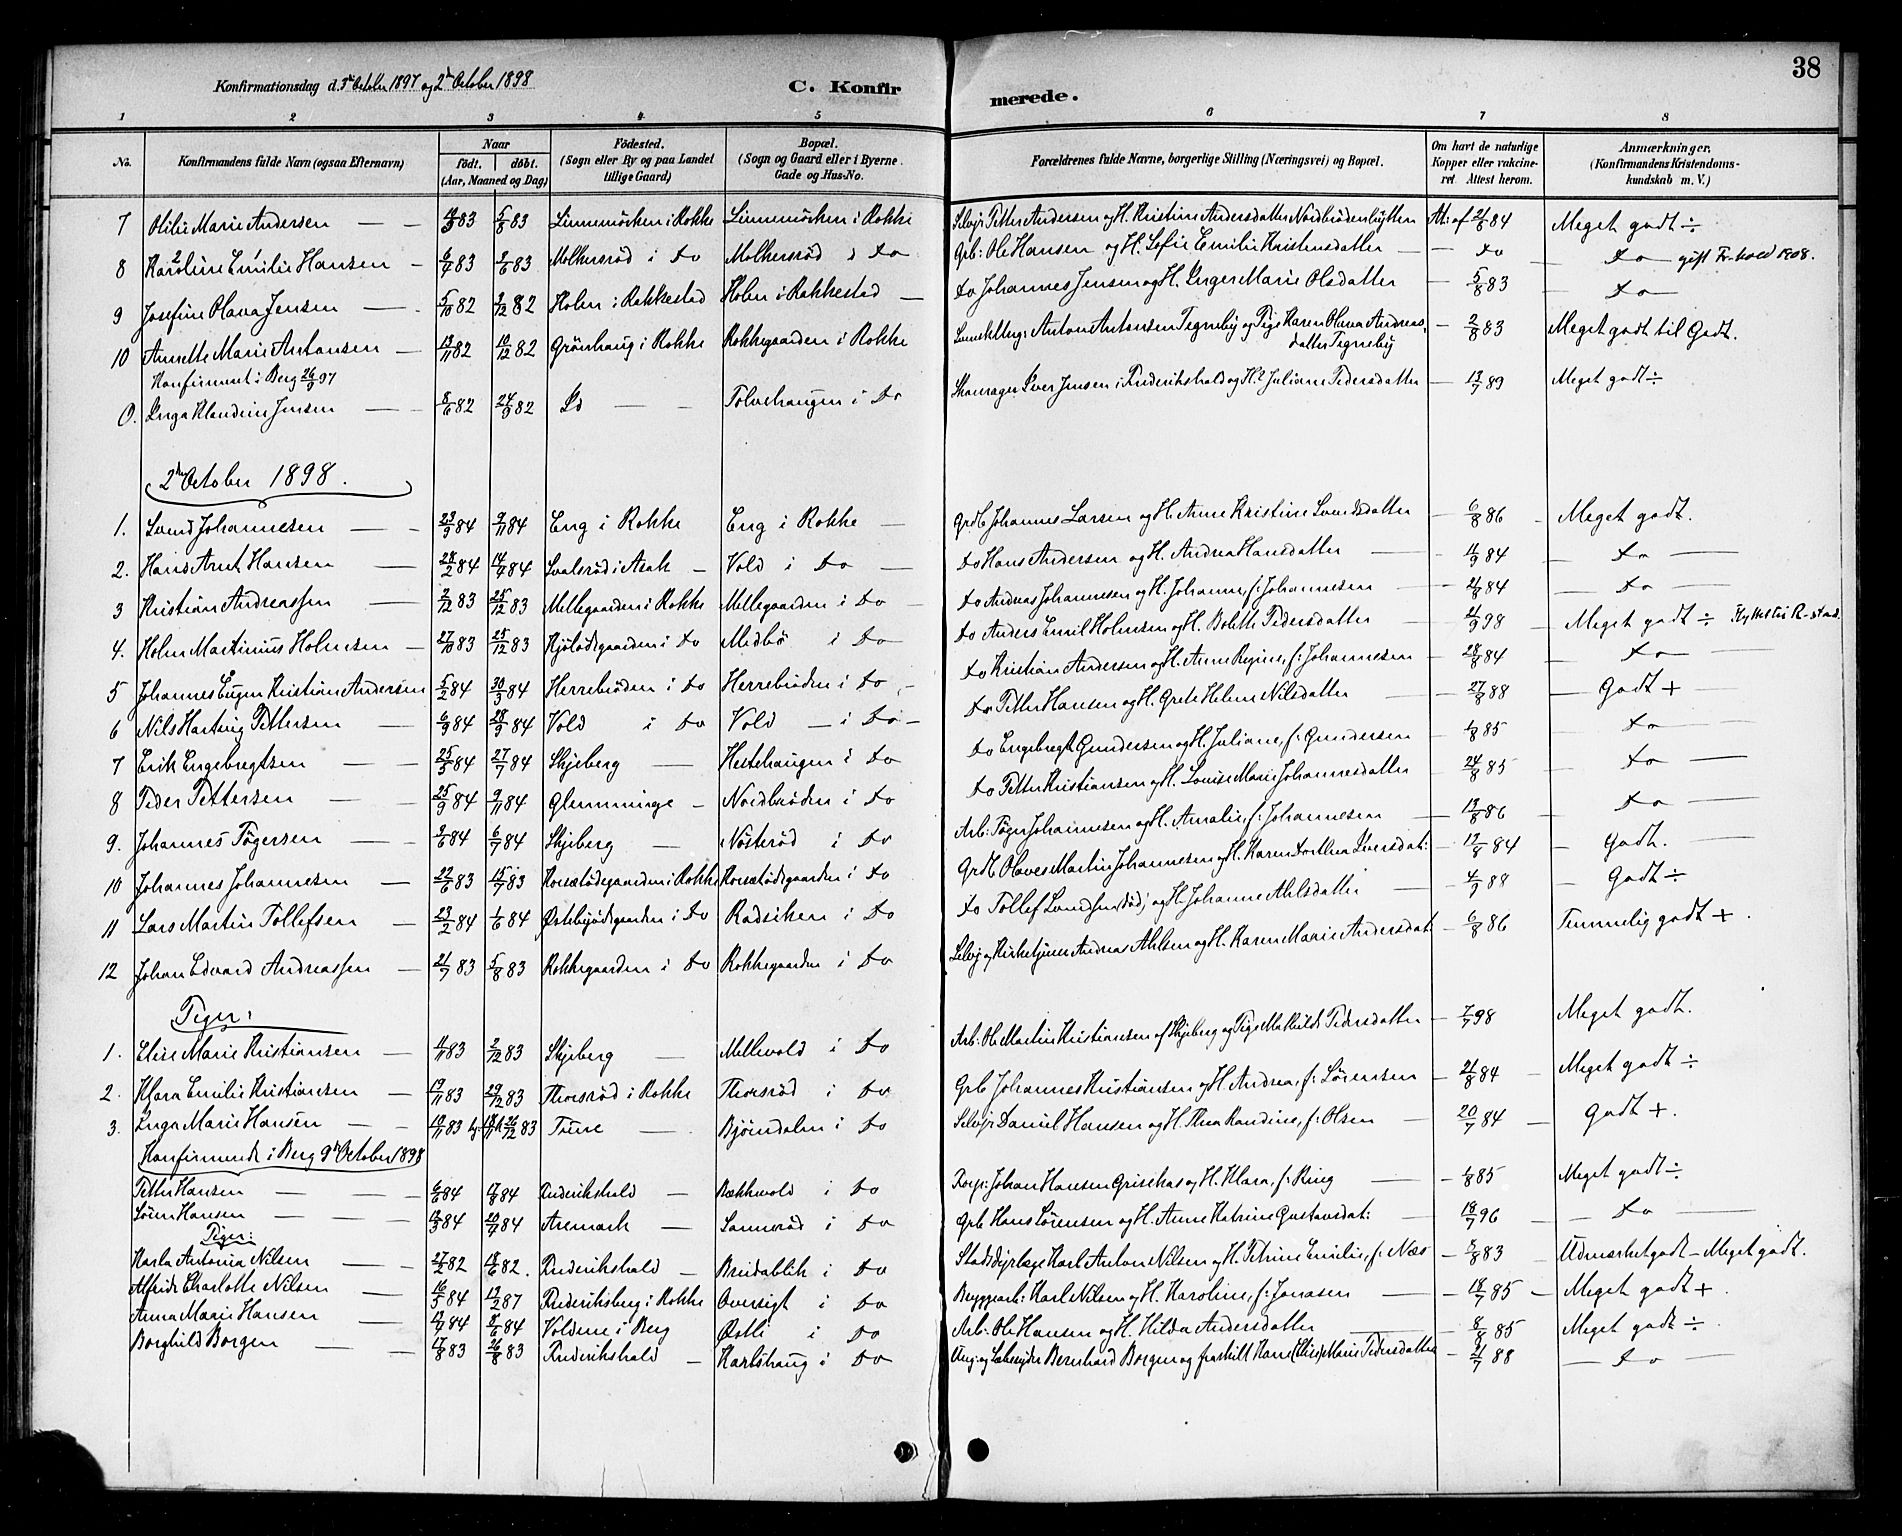 38
Konfirmationsdag d. 3die October 1897 og 2den October 1898
C. Konfirmerede.
1 2 3 4 5 6 7 8
No.
Konfirmandens fulde Navn (ogsaa Efternavn)
Naar
født. døbt.
(Aar, Maaned og Dag)
Fødested.
(Sogn eller By og paa Landet tillige Gaard)
Bopæl.
(Sogn og Gaard eller i Byerne Gade og Hus-No.
Forældrenes fulde Navne, borgerlige Stilling (Næringsvei) og Bopæl.
Om havt de naturlige Kopper eller vakcineret. Attest herom.
Anmærkninger.
(Konfirmandens Kristendomskundskab m. V.)
7 Olilie Marie Andersen 83 5/8 83 Linnemörken i Rokke Linnemörken i Rokke Selvej: Petter Andersen og H. Kristine Andersdatter Nordbrödenhytten At: af 21/8 84 Meget godt ÷
8 Karoline Emilie Hansen 6/4 83 83 Molkersröd i Do Molkersröd i Do Grb: Ole Hansen og H. Sofie Emilie Kristensdatter Do Do gift Fr.hald 1908.
9 Josefine Olava Jensen 5/10 82 3/12 82 Holen i Rakkestad Holen i Rakkestad Do Johannes Jensen og H. Inger Marie Olsdatter 5/8 83 Do
10 Annette Marie Antonsen 82 10/12 82 Grönhaug i Rokke Rokkegaarden i Rokke Anton Antonsen Tegneby og Pige Karen Olava Andreasdatter Tegneby 2/8 83 Meget godt til Godt.
Konfirmeret i Berg 26/9 97
0. Inga Klaudine Jensen 8/6 82 24/9 82 Do Tolvehaugen i Do Skomager Iver Jensen i Frederikshald og H. Juliane Pedersdatter 13/7 89 Meget godt ÷
2den October 1898.
1. Svend Johannesen 23/9 84 9/11 84 Eng i Rokke Eng i Rokke Grdb. Johannes Larsen og H. Anne Kristine Svendsdatter 6/8 86 Meget godt.
2. Hans Arnt Hansen 28/2 84 14/4 84 Svalsröd i Asak Vold i Do Do Hans Andersen og H. Andrea Hansdatter 11/9 84 Do
3 Kristian Andreassen 2/12 83 25/12 83 Mellegaarden i Rokke Mellegaarden i Do Do Andreas Johannesen og H. Johanne, f: Johannesen 21/8 84 Do
4. Holm Martinius Holmesen 27/10 83 25/12 83 Kjölödegaarden i Do Medbö i Do Do Anders Emil Holmsen og H. Bolette Pedersdatter 21/9 98 Meget godt ÷
5 Johannes Eugen Kristian Andersen 5/2 84 30/3 84 Herrebröden i Do Herrebröden i Do Do Kristian Andersen og H. Anne Regine, f: Johannesen 28/8 84 Do
6 Nils Hartvig Pettersen 6/9 84 28/9 84 Vold i Do Vold i Do Do Petter Hansen og H. Grete Helene Nilsdatter 27/8 88 Godt +
7 Erik Engebregtsen 25/5 84 27/7 84 Skjeberg Hestehaugen i Do Do Engebregt Gundersen og H. Juliane, f: Gundersen 1/8 85 Do
8 Peder Pettersen 25/9 84 9/11 84 Glemminge Nordbröden i Do Do Petter Kristiansen og H. Lovise Marie Johannesdatter 24/8 85 Do
9. Johannes Tögersen 84 6/7 84 Skjeberg Nösteröd i Do Arb: Töger Johannesen og H. Amalie, f: Johannesen 13/8 86 Do
10 Johannes Johannesen 22/6 83 15/7 83 Korsetödegaarden i Rokke Korsetödegaarden i Do Grdb. Olaves Martin Johannesen og H. Karen Dorthea Iversdat: 13/8 84 Godt.
11 Lars Martin Tollefsen 23/2 84 1/6 84 Östebyödegaarden i Do Radsiken i Do Do Tollef Svendsen (död) og H. Johanne Ahlsdatter 4/9 88 Godt ÷
12 Johan Edvard Andreassen 21/7 83 5/8 83 Rokkegaarden i Do Rokkegaarden i Do Selvej og Kirketjener Andreas Ahlsen og H. Karen Marie Andersdat: 6/8 86 Temmelig godt +
Piger:
1. Elise Marie Kristiansen 4/11 83 2/12 83 Skjeberg Mellevold i Do Arb. Ole Martin Kristiansen af Skjeberg og Pige Mathilde Pedersdatter 7/7 98 Meget godt.
2. Klara Emilie Kristiansen 19/11 83 29/12 83 Thorsröd i Rokke Thorsröd i Do Grb Johannes Kristiansen og H. Andrea, f: Sörensen 21/8 84 Meget godt ÷
3. Inga Marie Hansen 83 26/12 83 Tune Björndalen i Do Selvejr Daniel Hansen og H. Thea Randine, f: Olsen 20/7 84 Godt +.
Konfirmerede i Berg 9de October 1898
Petter Hansen 6/6 84 17/8 84 Frederikshald Bækkevold i Do Johan Hansen Grisehas og H. Klara, f: Ring 1/8 85 Meget godt ÷
Sören Hansen 13/3 84 20/4 84 Aremark Sanneröd i Do Grb Hans Sörensen og H. Anne Katrine Gustavsdat: 18/7 96 Do
Piger:
Karla Antonia Nilsen 27/2 82 18/6 82. Frederikshald Breidablik i Do Stadsdyrlæge Karl Anton Nilsen og H. Petrine Emilie, f: Næs 5/8 83 Udmærket godt – Meget godt.
Alfride Charlotte Nilsen 16/5 84 13/2 87 Frederiksberg i Rokke Oversigt i Do Bryggearb: Karl Nilsen og H. Karoline, f: Jonasen 18/7 85 Meget godt +
Anna Marie Hansen 84 8/6 84 Voldene i Berg Östli i Do Arb: Ole Hansen og H. Hilda Andersdatter 8/8 85 Meget godt ÷
Borghild Borgen 17/8 83 26/8 83 Frederikshald Karlshaug i Do Bernhard Borgen og fraskilt Kone (Elise) Marie Pedersdatter 21/7 88 Do